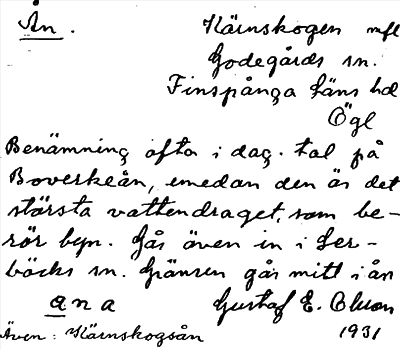 Ån. Kärnskogen mfl
Godegårds sn.
Finspånga läns hd
Ögl
Benämning ofta i dag. tal på
Boverkeån, emedan den är det
största vattendraget, som be-
rör byn. Går även in i Ler-
bäcks sn. Gränsen går mitt i ån
ana Gustaf E. Olson
Även: Kärnskogsån 1931